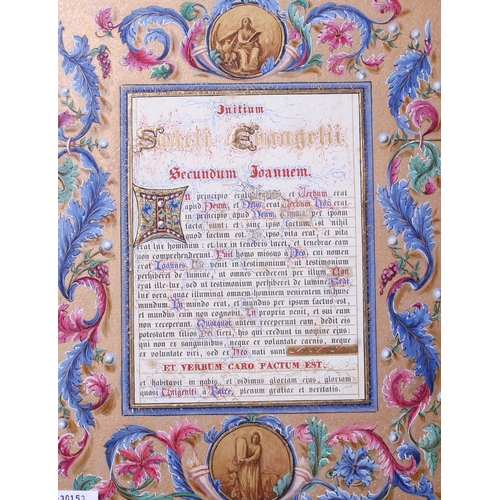 Initium
Sancti Evangelii
Secundum Ioannem.
In principio erat Verbum, et Verbum erat
apud Deum, et Deus erat Verbum. Hoc erat
in principio apud Deum. Omnia per ipsum
facta sunt: et sine ipso factum est nihil
quod factum est. In ipso vita erat, et vita
erat lux hominum: et lux in tenebris lucet, et tenebrae eam
non comprehenderunt. Fuit homo missus a Deo, cui nomen
erat Ioannes. Hic venit in testimonium, ut testimonium
perhiberet de lumine, ut omnes crederent per illum. Non
erat ille lux, sed ut testimonium perhiberet de lumine. Erat
lux vera, quae illuminat omnem hominem venientem in hunc
mundum. In mundo erat, et mundus per ipsum factus est,
et mundus eum non cognovit. In propria venit, et sui eum
non receperunt. Quotquot autem receperunt eum, dedit eis
potestatem filios Dei fieri, his qui credunt in nomine ejus:
qui non ex sanguinibus, neque ex voluntate carnis, neque
ex voluntate viri, sed ex Deo nati sunt
ET VERBUM CARO FACTUM EST,
et habitavit in nobis, et vidimus gloriam ejus, gloriam
quasi Unigeniti à Patre, plenum gratiae et veritatis.
30153